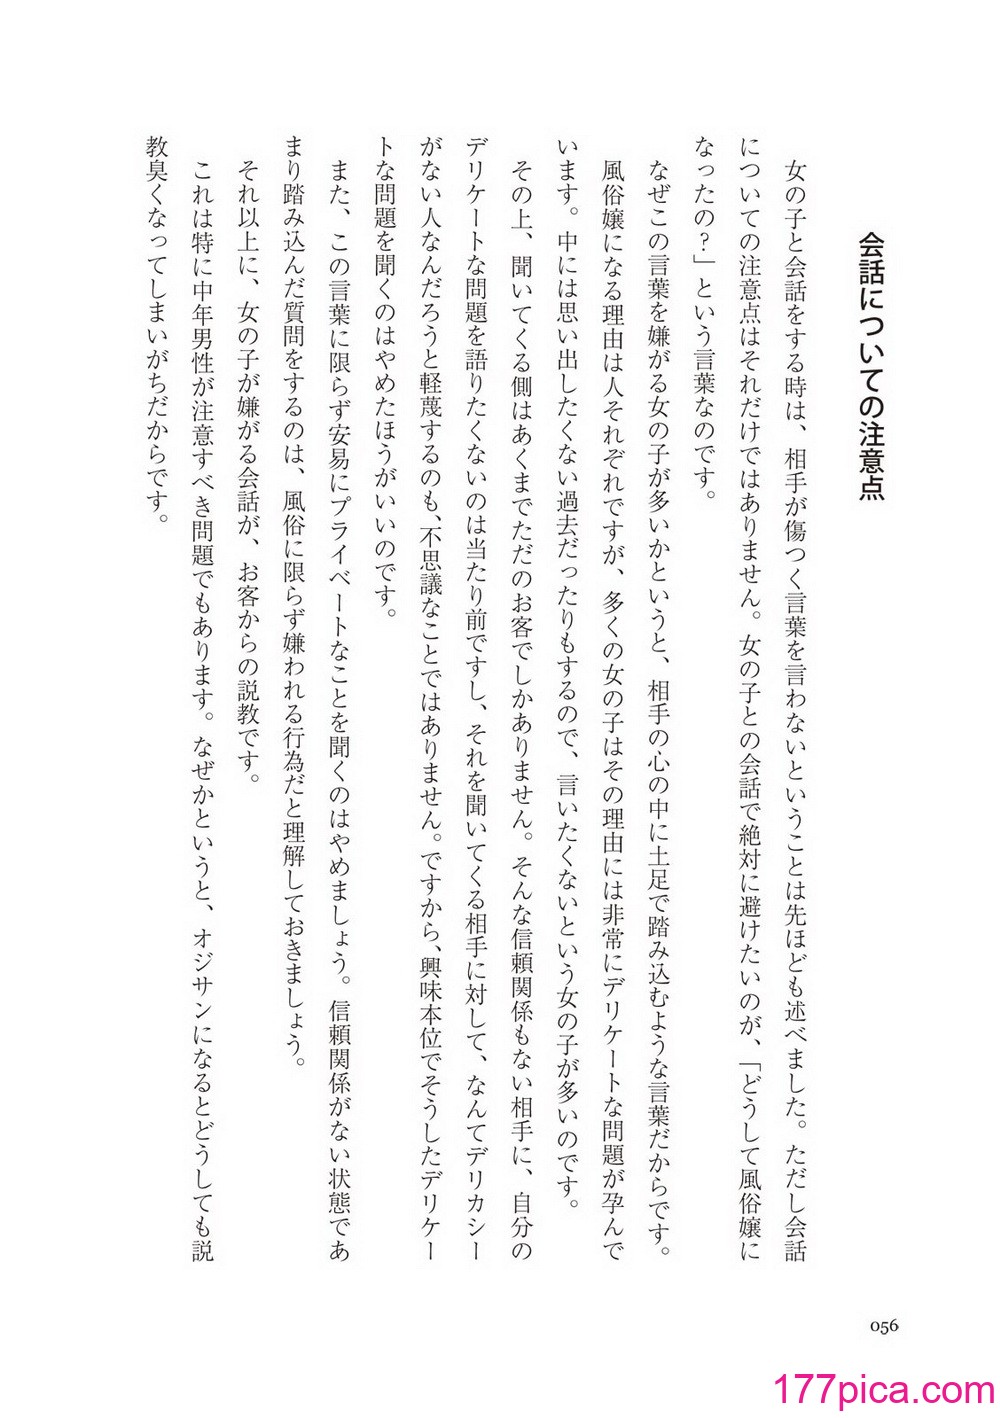 会話についての注意点
女の子と会話をする時は、相手が傷つく言葉を言わないということは先ほども述べました。ただし会話
についての注意点はそれだけではありません。女の子との会話で絶対に避けたいのが、「どうして風俗嬢に
なったの？」という言葉なのです。
なぜこの言葉を嫌がる女の子が多いかというと、相手の心の中に土足で踏み込むような言葉だからです。
風俗嬢になる理由は人それぞれですが、多くの女の子はその理由には非常にデリケートな問題が孕んで
います。中には思い出したくない過去だったりもするので、言いたくないという女の子が多いのです。
その上、聞いてくる側はあくまでただのお客でしかありません。そんな信頼関係もない相手に、自分の
デリケートな問題を語りたくないのは当たり前ですし、それを聞いてくる相手に対して、なんてデリカシー
がない人なんだろうと軽蔑するのも、不思議なことではありません。ですから、興味本位でそうしたデリケー
トな問題を聞くのはやめたほうがいいのです。
また、この言葉に限らず安易にプライベートなことを聞くのはやめましょう。信頼関係がない状態であ
まり踏み込んだ質問をするのは、風俗に限らず嫌われる行為だと理解しておきましょう。
それ以上に、女の子が嫌がる会話が、お客からの説教です。
これは特に中年男性が注意すべき問題でもあります。なぜかというと、オジサンになるとどうしても説
教臭くなってしまいがちだからです。
056
177pica.com